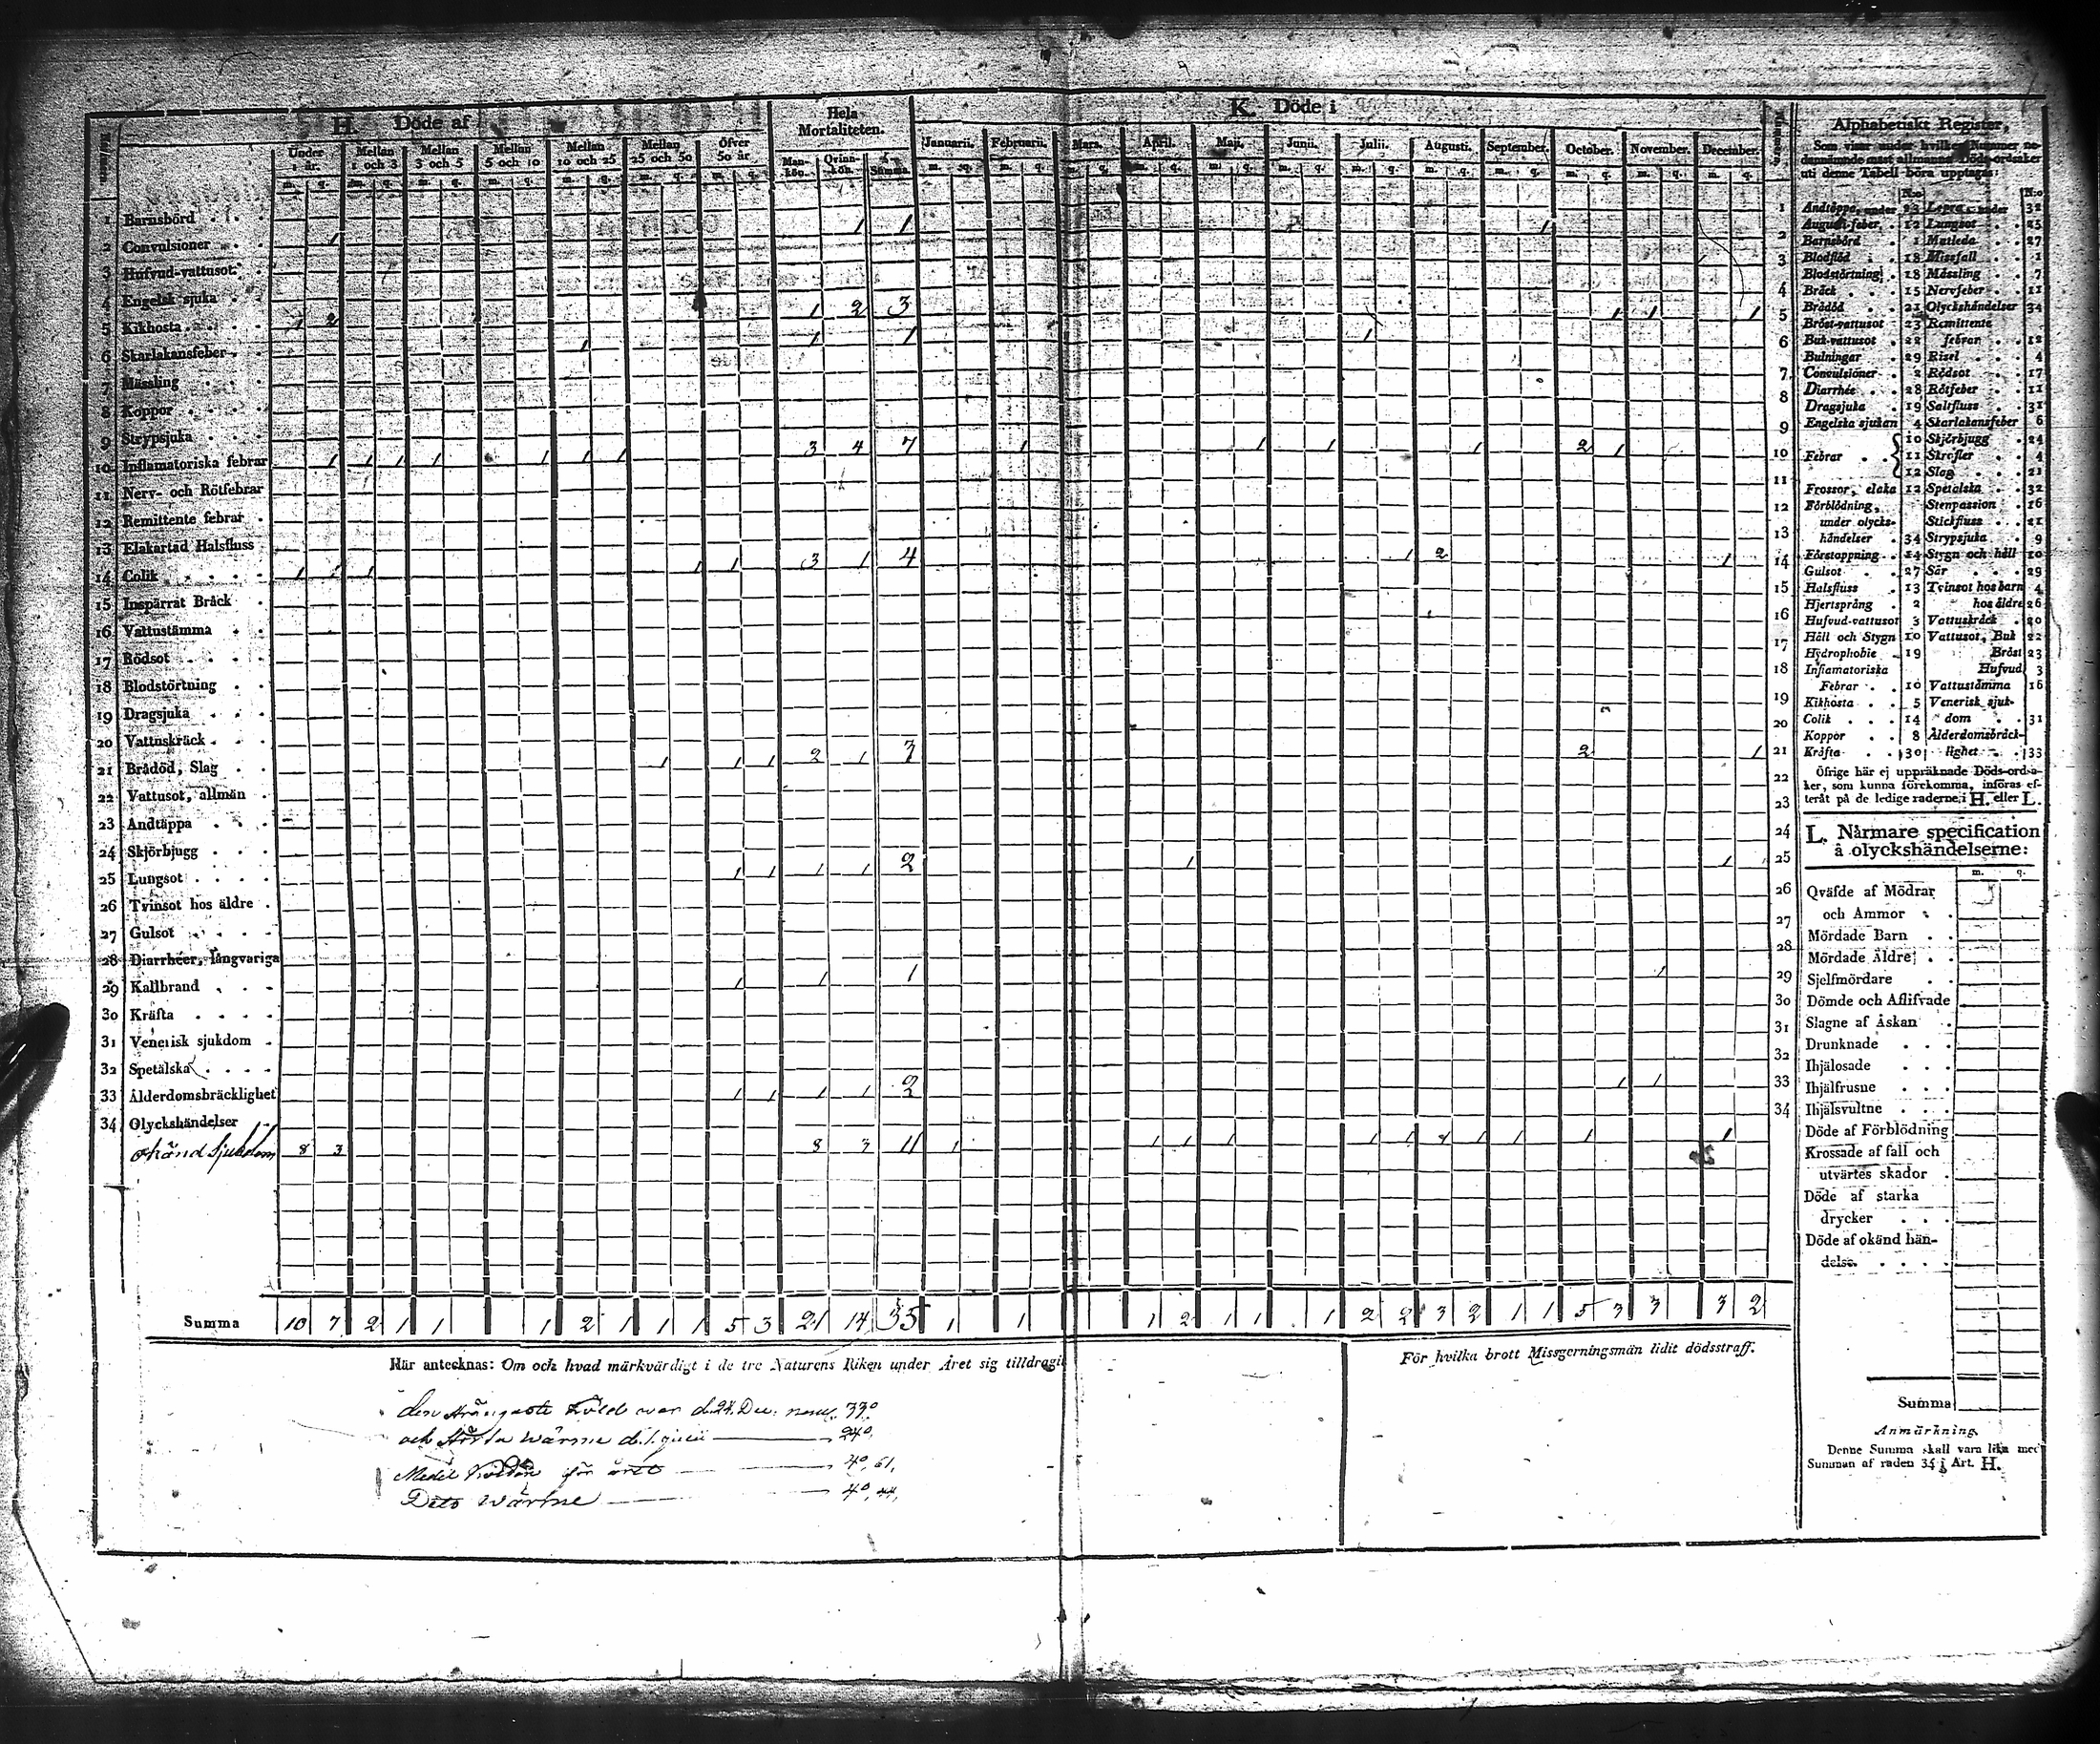 H. Döde af
Under 1 år. Mellan 1 och 3 Mellan 3 och 5 Mellan 5 och 10 Mellan 10 och 25 Mellan 25 och 50 Öfver 50 år
m. q. m. q. m. q. m. q. m. q. m. q. m. q.
Hela Mortaliteten.
Man-kön. Qvinn-kön. Summa
K. Döde i
Januarii. Februarii. Mars. April. Maji. Junii. Julii. Augusti. September. October. November. December.
1 Barnsbörd 1
2 Convulsioner 1 1 1 1 2
3 Hufvud-vattusot 3
4 Engelsk sjuka 4
5 Kikhosta 1 2 1 2 3 1 1 1 5
6 Skarlakansfeber 1 1 1 1 6
7 Mässling 7
8 Koppor 8
9 Strypsjuka 9
10 Inflamatoriska febrar 1 1 1 1 1 1 1 3 4 7 1 1 1 1 2 1 10
11 Nerv- och Rötfebrar 11
12 Remittente febrar 12
13 Elakartad Halsfluss 13
14 Colik 1 1 1 1 3 1 4 1 2 1 14
15 Inspärrat Bråck 15
16 Vattustämma 16
17 Rödsot 17
18 Blodstörtning 18
19 Dragsjuka 19
20 Vattuskräck 20
21 Brådöd, Slag 1 1 1 2 1 3 2 1 21
22 Vattusot, allmän 22
23 Andtäppa 23
24 Skjörbjugg 24
25 Lungsot 1 1 1 1 2 1 1 25
26 Tvinsot hos äldre 26
27 Gulsot 27
28 Diarrhéer, långvariga 28
29 Kallbrand 1 1 1 1 29
30 Kräfta 30
31 Venerisk sjukdom 31
32 Spetälska 32
33 Ålderdomsbräcklighet 1 1 1 1 2 1 1 33
34 Olyckshändelser 34
okänd Sjukdom 8 3 8 3 11 1 1 1 1 1 1 1 1 1 1
Summa 10 7 2 1 1 1 2 1 1 1 5 3 21 14 35 1 1 1 2 1 1 1 2 2 3 2 1 1 5 3 3 3 2
Här antecknas: Om och hvad märkvärdigt i de tre Naturens Riken under Året sig tilldragit
den strängaste köld war d. 24. Dec.
och största wärme d. 1. 24°.
Medel Kölden för året 4°, 61,
Dito wärme 4°, 44,
För hvilka brott Missgerningsmän lidit dödsstraff.
Alphabetiskt Register,
Som visar under hvilket Nummer ne-
dannämnde mest allmänna Döds-ordsaker
uti denne Tabell böra upptagas:
N:o N:o
Andtäppa, under 23 Lepra, under 32
Augusti-feber, 12 Lungsot 25
Barnsbörd 1 Matleda 27
Blodflöd 18 Missfall 1
Blodstörtning 18 Mässling 7
Bråck 15 Nervfeber 11
Brådöd 21 Olyckshändelser 34
Bröst-vattusot 23 Remittente
Buk-vattusot 22 febrar 12
Bulningar 29 Risel 4
Convulsioner 2 Rödsot 17
Diarrhée 28 Rötfeber 11
Dragsjuka 19 Saltfluss 31
Engelska sjukan 4 Skarlakansfeber 6
Febrar 10 Skjörbjugg 24
11 Skrofler 4
12 Slag 21
Frossor, elaka 12 Spetälska 32
Förblödning, Stenpassion 16
under olycks- Stickfluss 21
händelser 34 Strypsjuka 9
Förstoppning 14 Stygn och håll 10
Gulsot 27 Sår 29
Halsfluss 13 Tvinsot hos barn 4
Hjertsprång 2 hos äldre 26
Hufvud-vattusot 3 Vattuskräck 20
Håll och Stygn 10 Vattusot, Buk 22
Hydrophobie 19 Bröst 23
Inflamatoriska Hufvud 3
Febrar 10 Vattustämma 16
Kikhosta 5 Venerisk sjuk-
Colik 14 dom 31
Koppor 8 Ålderdomsbräck-
Kräfta 30 lighet 33
Öfrige här ej uppräknade Döds-ordsa-
ker, som kunna förekomma, införas ef-
teråt på de ledige raderne i H. eller L.
L. Närmare specification
å olyckshändelserne:
m. q.
Qväfde af Mödrar
och Ammor
Mördade Barn
Mördade Äldre
Sjelfmördare
Dömde och Aflifvade
Slagne af Åskan
Drunknade
Ihjälosade
Ihjälfrusne
Ihjälsvultne
Döde af Förblödning
Krossade af fall och
utvärtes skador
Döde af starka
drycker
Döde af okänd hän-
delse
Summa
Anmärkning.
Denne Summa skall vara lika med
Summan af raden 34 i Art. H.